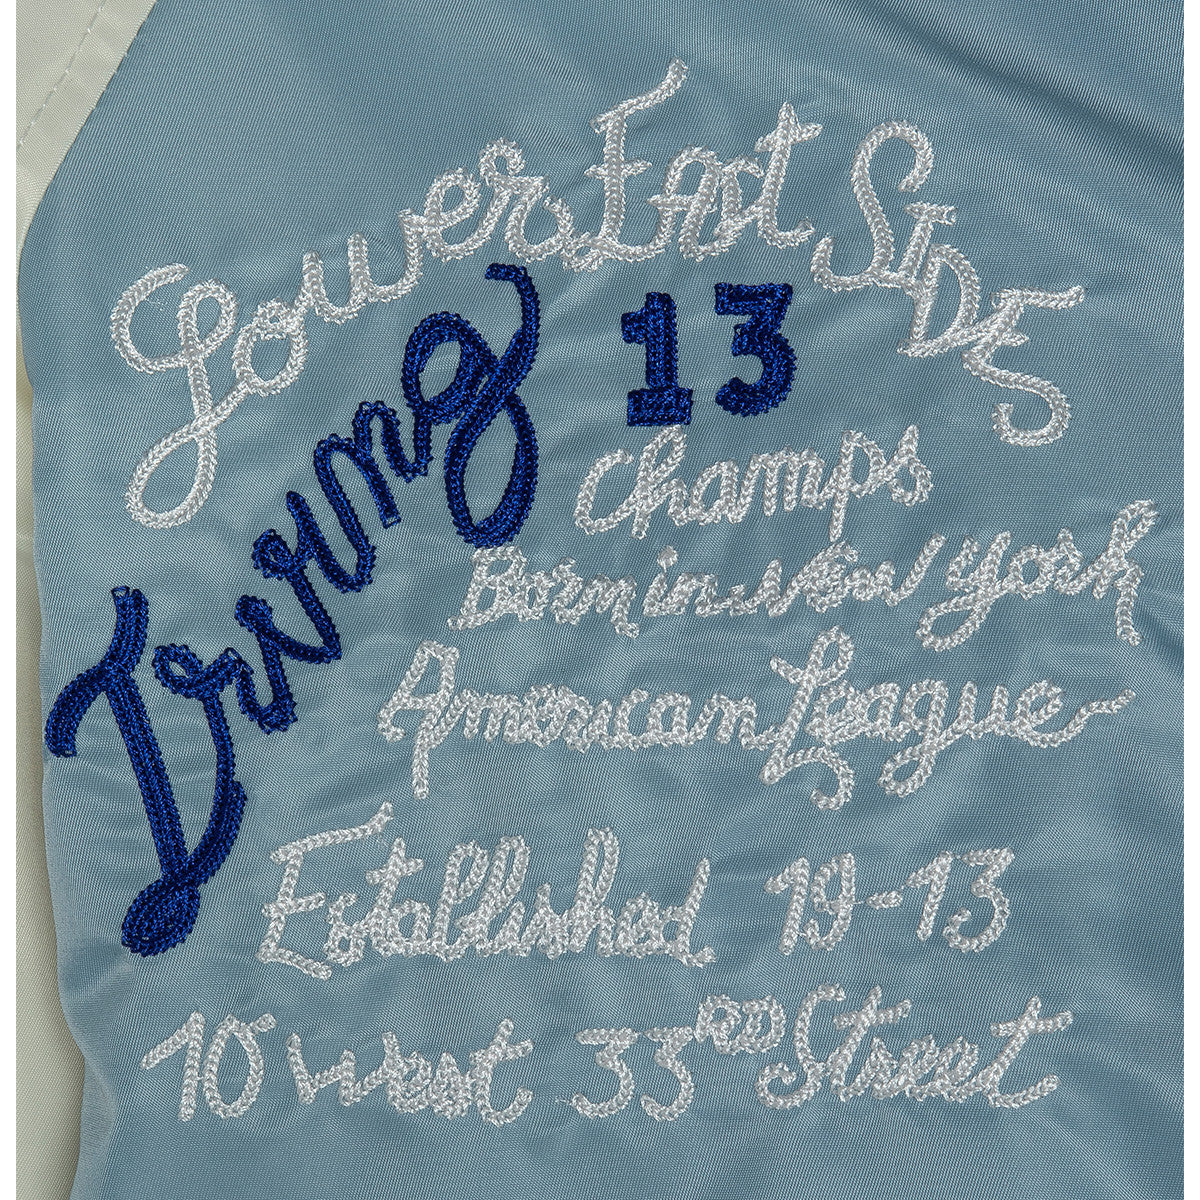 Lower East SIDE
Irving 13
Champs
Born in New York
American League
Established 19-13
70 West 33RD Street